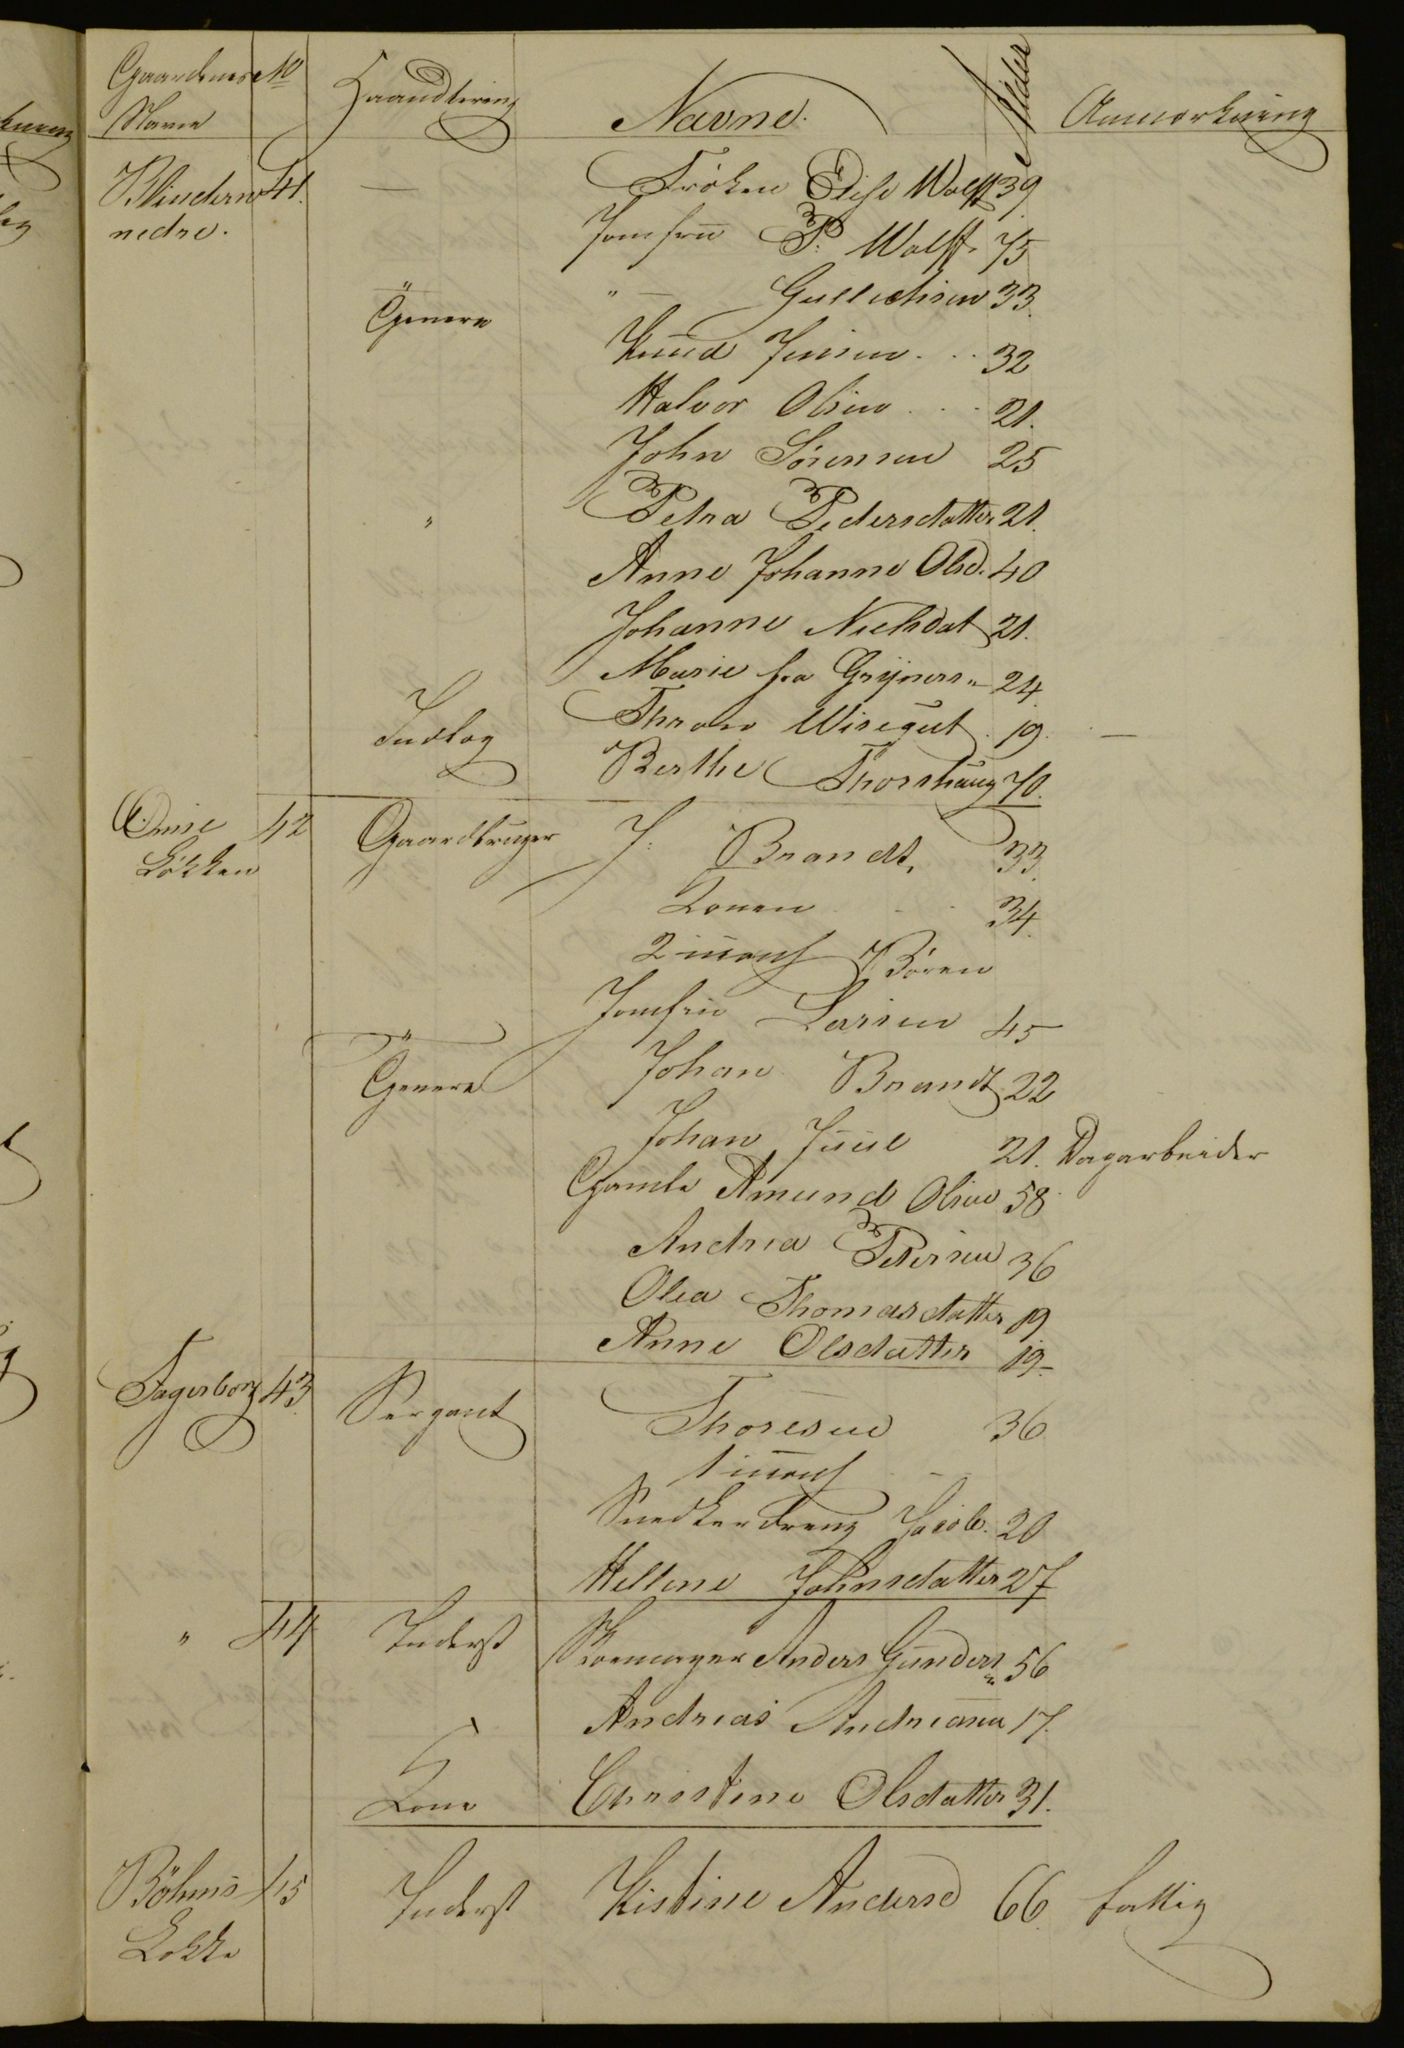 Gaardenes No Haandtering Navne. Alder Anmærkning
Navn
Vlindern 41. — Fröken Elise Wolff 39
nedre. Jomfru P. Wolff. 75
" — Gullichsen 33.
Tjenere Knud Jensen . . . 32
Halvor Olsen . . . 21.
John Sörensen 25
" Petra Pedersdatter 21.
Anne Johanne Olsd. 40
Johanne Nielsdat 21.
Marie fra 24
Thron 19. —
Indlag Berthe Thorshaug 70.
42 Gaardbruger J. Brandt, 33.
Lökken
Konen . . . 34.
2 umynd Börn
Jomfru Larsen 45
Tjenere Johan Brandt 22
Johan Juul 21. Dagarbeider
Gamle Amund Olsen 58
Andrea Petersen 36
Olea Thomasdatter 19
Anne Olsdatter 19-
Fagerborg 43. Sergant Thoresen 36
1 umynd
Snedkerdreng Jacob. 20
Hellene Johnsdatter 27
" 44 Inderst Skomager Anders Gunders 56
Andreas Andreasen 17.
Kone Christine Olsdatter 31.
Böhms 45 Inderst Kistine Andersd 66. fattig
Lökke